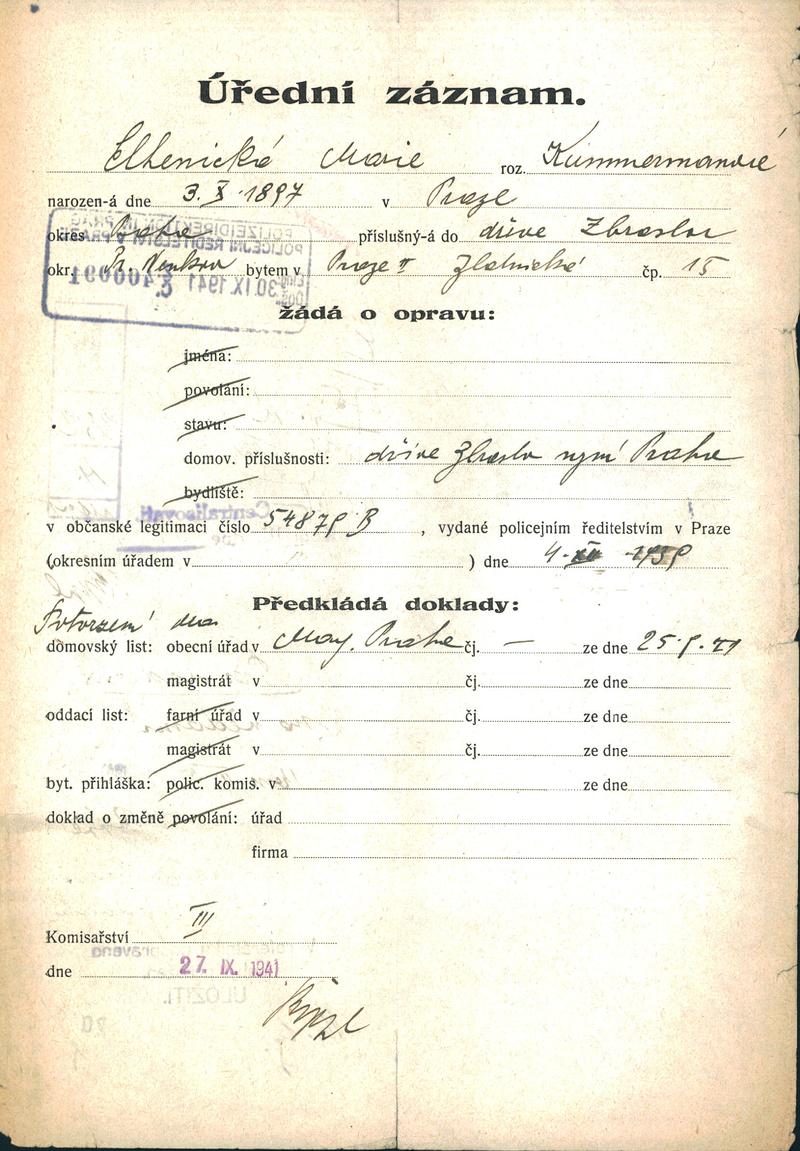 Úřední záznam.
Marie roz.
narozen-á dne 3. X. 1897 v Praze
okres Praha příslušný-á do dříve Zbraslav
okr. Pr. Venkov bytem v Praze II Zlatnická čp. 15
POLIZEIDIREKTION IN PRAG
POLICEJNÍ ŘEDITELSTVÍ V PRAZE
30. IX. 1941
č. 400091
žádá o opravu:
jména:
povolání:
stavu:
domov. příslušnosti: dříve Zbraslav nyní Praha
bydliště:
v občanské legitimaci číslo B , vydané policejním ředitelstvím v Praze
(okresním úřadem v ) dne 4.
Předkládá doklady:
Potvrzení
domovský list: obecní úřad v Mag. Praha čj. — ze dne
magistrát v čj. ze dne
oddací list: farní úřad v čj. ze dne
magistrát v čj. ze dne
byt. přihláška: polic. komis. v ze dne
doklad o změně povolání: úřad
firma
Komisařství III
dne 27. IX. 1941